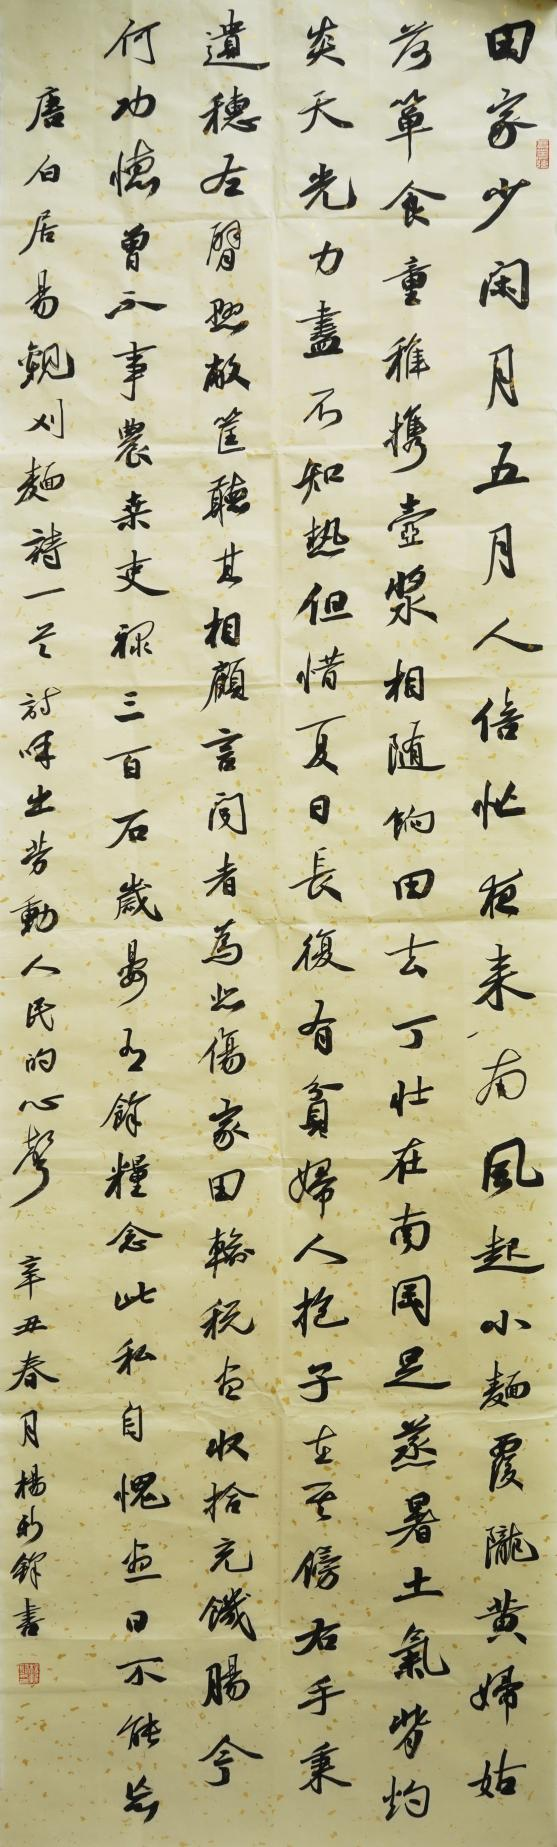 田家少闲月五月人倍忙夜来南风起小麺覆隴黄婦姑
荷箪食童稚携壺漿相随餉田去丁壮在南岡足蒸暑土氣背灼
炎天光力盡不知热但惜夏日長復有貧婦人抱子在其傍右手秉
遺穗左臂懸敝筐聽其相顧言闻者為悲傷家田輸税尽收拾充饑腸今
何功德曽不事農桒吏禄三百石歳晏有餘糧念此私自愧尽日不能忘
唐白居易觀刈麺詩一首 詩味出劳動人民的心聲 辛丑春月楊新鋒書